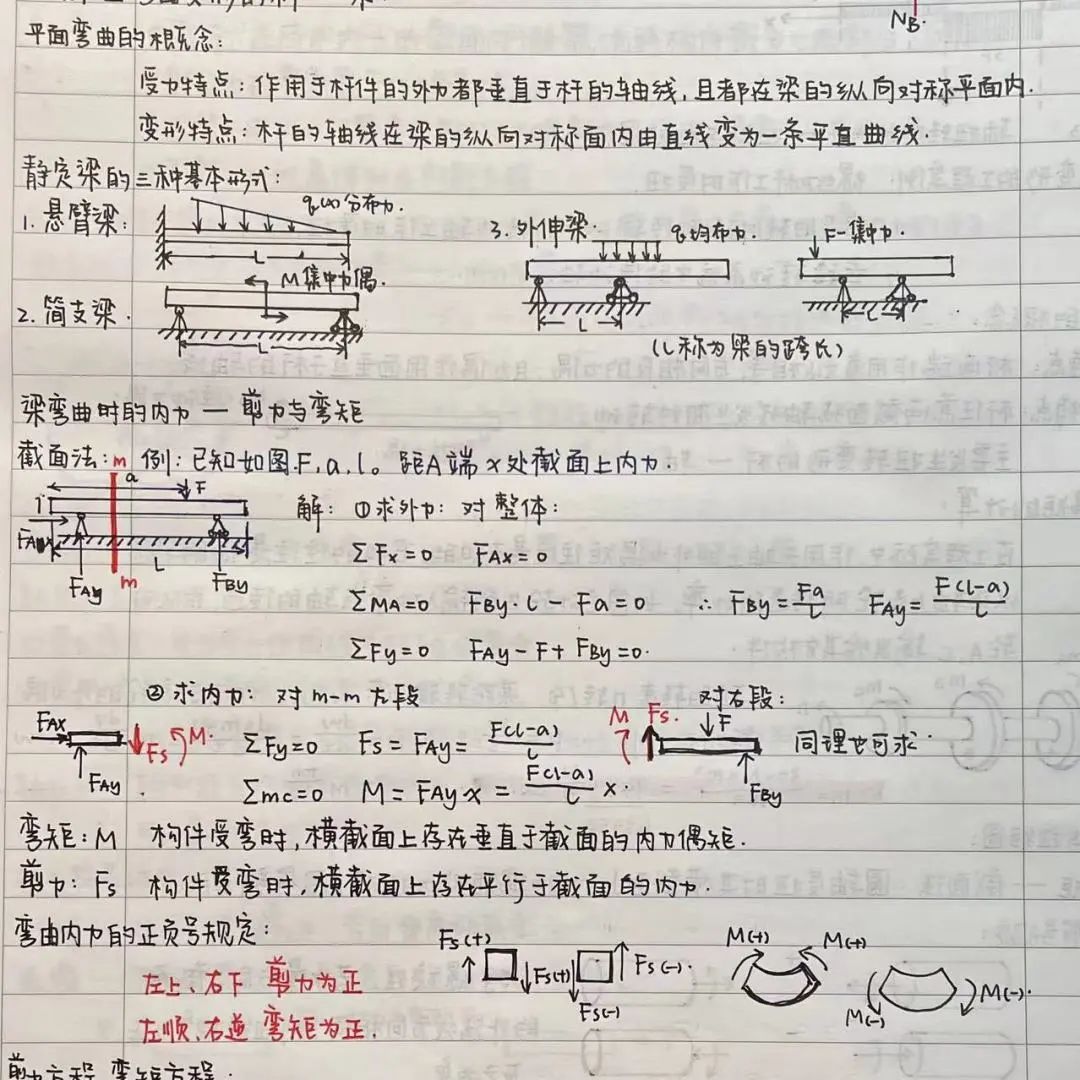 N_B.
平面弯曲的概念:
受力特点: 作用于杆件的外力都垂直于杆的轴线, 且都在梁的纵向对称平面内.
变形特点: 杆的轴线在梁的纵向对称面内由直线变为一条平直曲线.
静定梁的三种基本形式:
1. 悬臂梁: q(x)分布力.
L
3. 外伸梁. q均布力. F-集中力.
L L
(L称为梁的跨长)
2. 简支梁. M集中力偶.
L
梁弯曲时的内力 — 剪力与弯矩
截面法: m 例: 已知如图.F, a, l。 距A端x处截面上内力.
a F
F_Ax L
F_Ay m F_By
解: ①求外力: 对整体:
ΣFx=0 F_Ax=0
ΣM_A=0 F_By·l - Fa=0 ∴ F_By=Fa/l F_Ay=F(l-a)/l
ΣFy=0 F_Ay-F+F_By=0.
②求内力: 对m-m左段 对右段:
F_Ax F_Ay Fs M. ΣFy=0 Fs=F_Ay=F(l-a)/l M Fs. F F_By 同理也可求.
Σmc=0 M=F_Ay x=F(l-a)/l x.
弯矩: M 构件受弯时, 横截面上存在垂直于截面的内力偶矩.
剪力: Fs 构件受弯时, 横截面上存在平行于截面的内力.
弯曲内力的正负号规定:
Fs(+) Fs(+) Fs(-) Fs(-). M(+) M(+) M(-) M(-).
左上、右下 剪力为正
左顺、右逆 弯矩为正.
剪力方程, 弯矩方程.